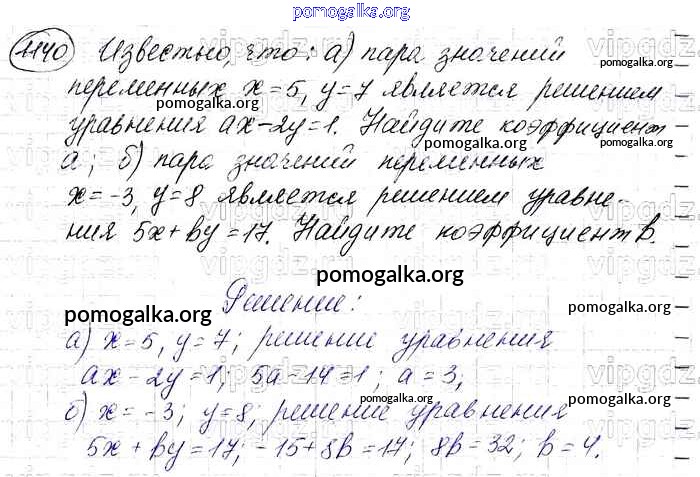 pomogalka.org
1140 Известно, что: а) пара значений
переменных x=5, y=7 является решением
pomogalka.org pomogalka.org
уравнения ax-2y=1. Найдите коэффициент
pomogalka.org pomogalka.org
а; б) пара значений переменных
x=-3, y=8 является решением уравне-
ния 5x+by=17. Найдите коэффициент b.
pomogalka.org
Решение:
pomogalka.org pomogalka.org
а) x=5, y=7; решение уравнения
ax-2y=1; 5a-14=1; a=3;
pomogalka.org pomogalka.org
б) x=-3; y=8, решение уравнения
5x+by=17; -15+8b=17; 8b=32; b=4.
pomogalka.org